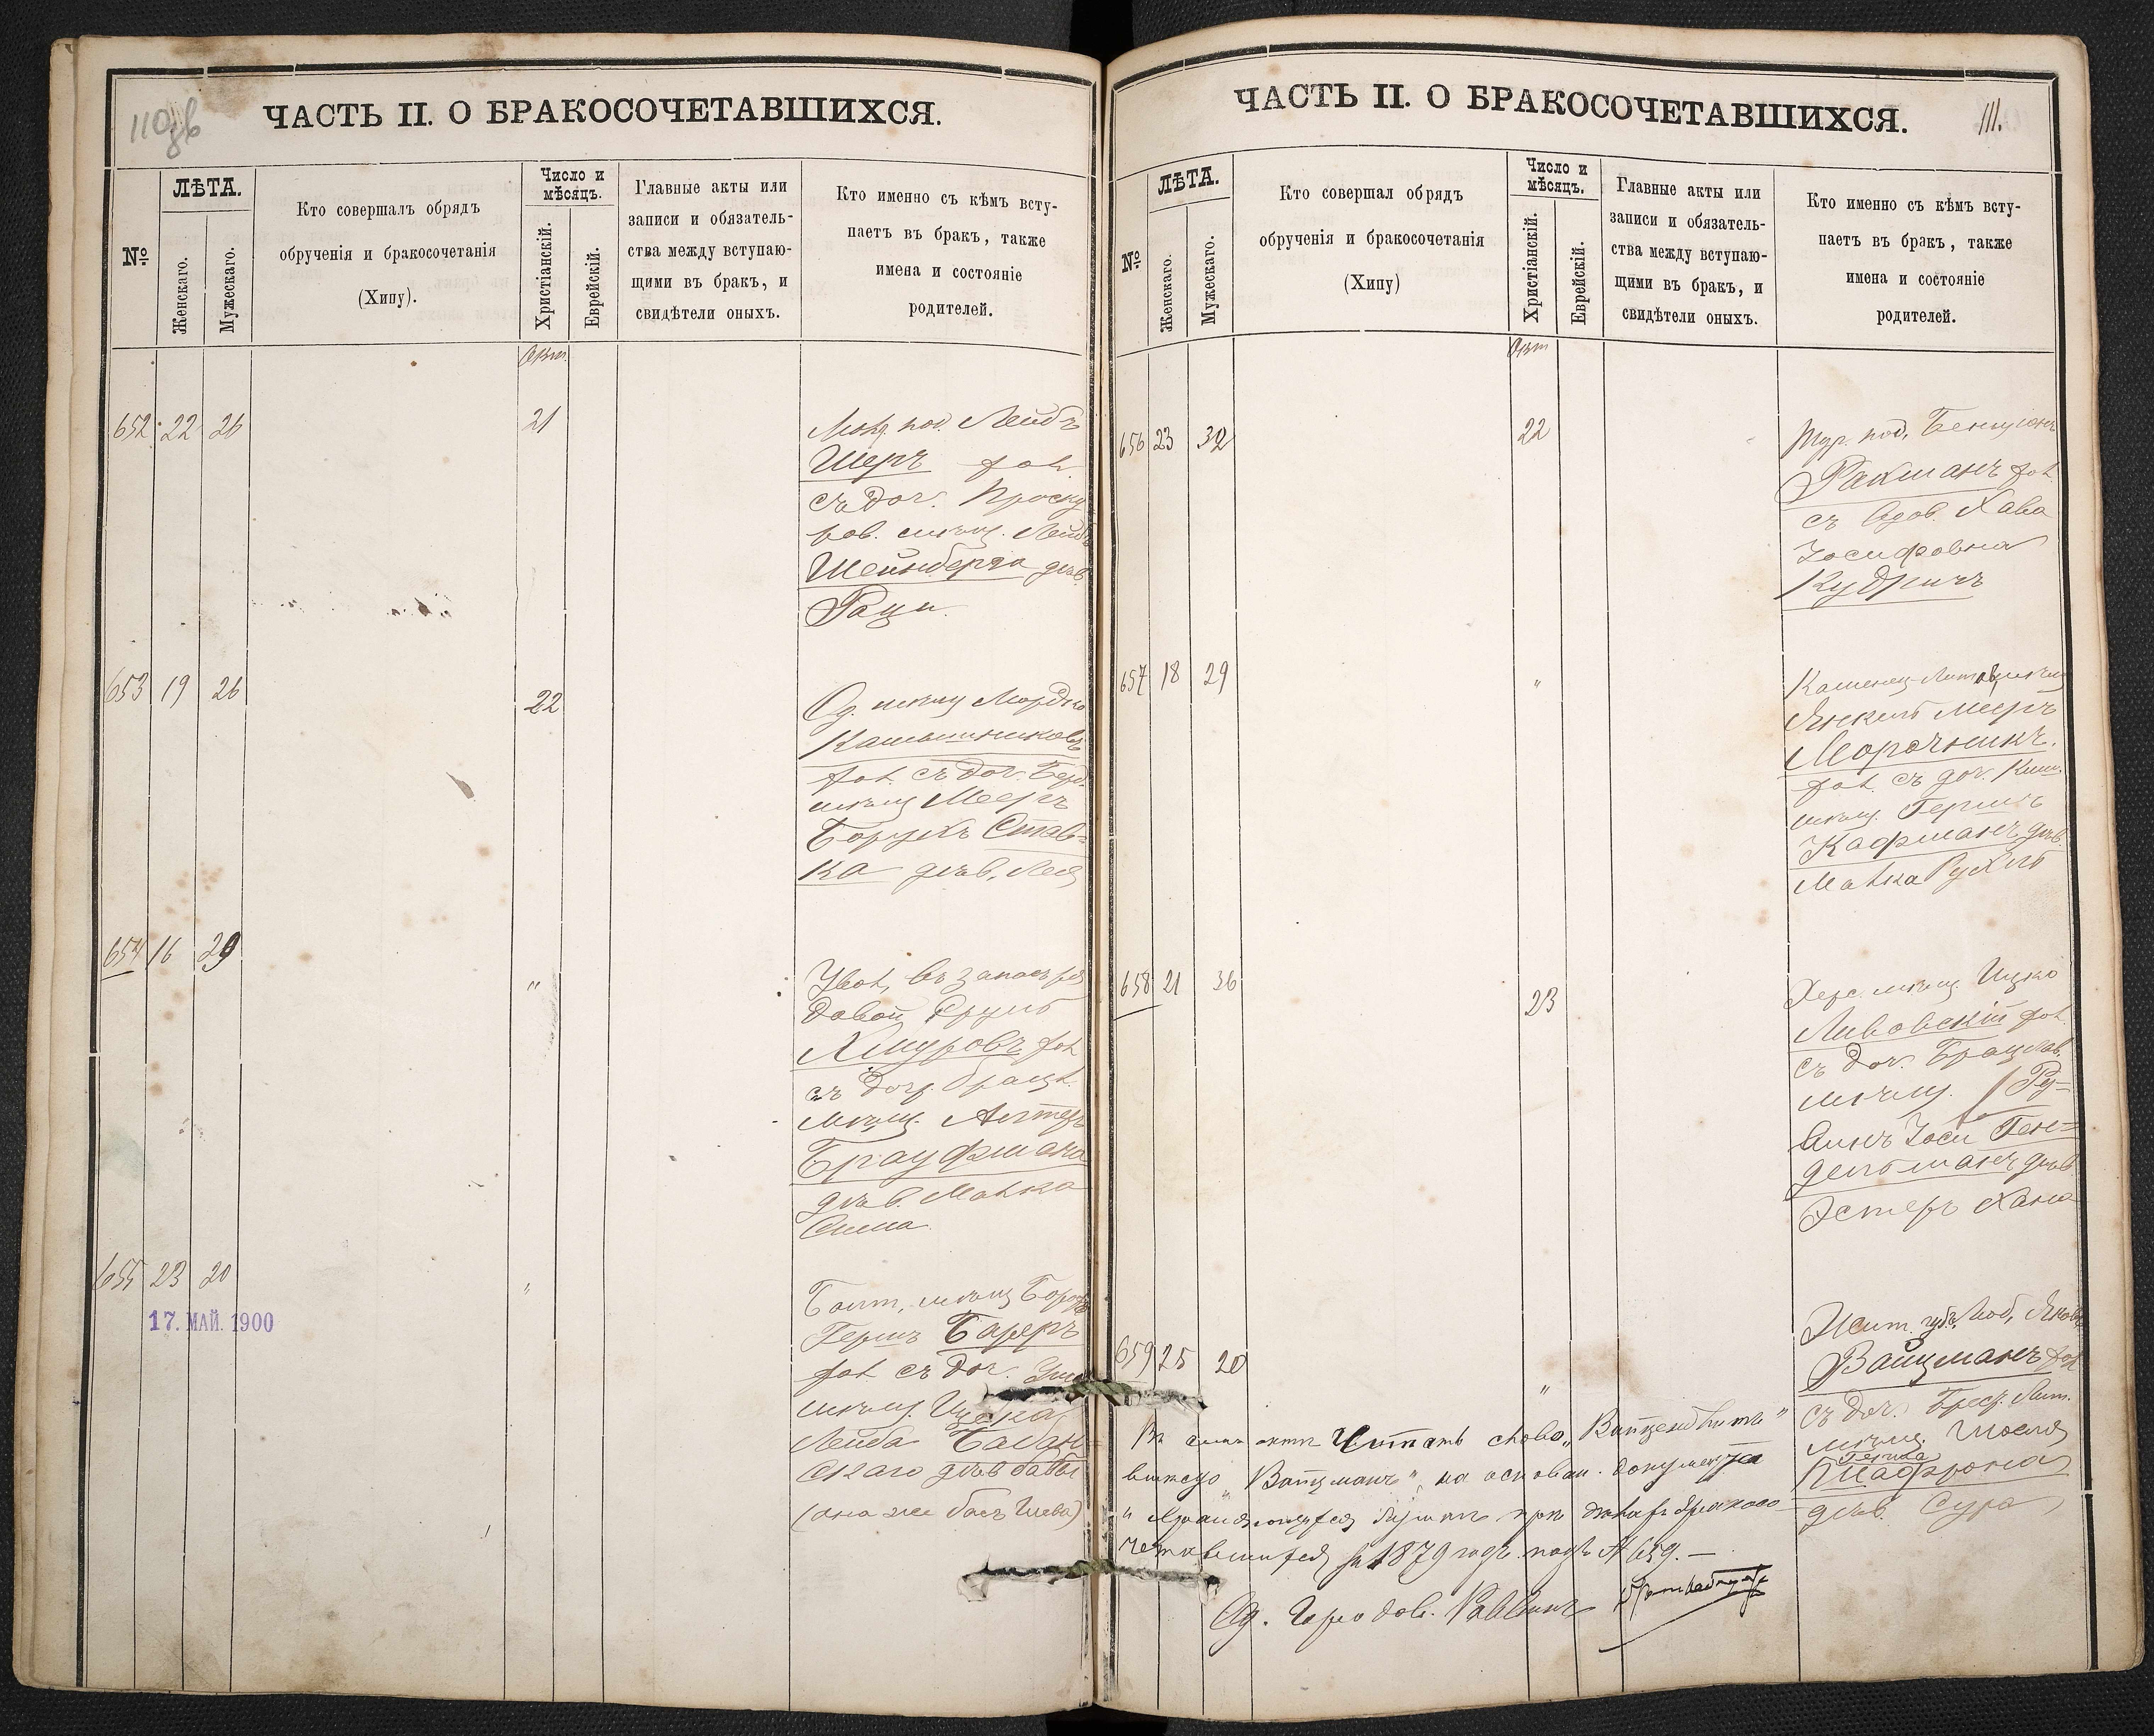 110об
ЧАСТЬ II. О БРАКОСОЧЕТАВШИХСЯ.
№
ЛѢТА.
Женскаго.
Мужескаго.
Кто совершалъ обрядъ
обрученія и бракосочетанія
(Хипу).
Число и
мѣсяцъ.
Христіанскій.
Еврейскій.
Главные акты или
записи и обязатель-
ства между вступаю-
щими въ бракъ, и
свидѣтели оныхъ.
Кто именно съ кѣмъ всту-
паетъ въ бракъ, также
имена и состояніе
родителей.
Окт.
652 22 26
21
под. Лейбъ
Шеръ хол.
съ доч. Проску
ров. мѣщ. Лейбы
Шейнберга дѣв.
Раци
653 19 26
22
Од. мѣщ Мордко
хол. съ доч. Берд.
мѣщ Мееръ
Борухъ Став-
ка дѣв. Лея
654 16 29
"
Увол. въ запасъ ря
довой Сруль
хол
съ доч. брацл.
мѣщ. Алтеръ
Брауфмана
дѣв. Малка
Сима
655 23 20
"
Балт. мѣщ Борухъ
Гершъ Бареръ
хол съ доч. Ум
мѣщ. Ицека
Лейба Балан-
скаго дѣв бабы
(она же бася Шева)
17. МАЙ. 1900
111.
ЧАСТЬ II. О БРАКОСОЧЕТАВШИХСЯ.
№
ЛѢТА.
Женскаго.
Мужескаго.
Кто совершал обрядъ
обрученія и бракосочетанія
(Хипу)
Число и
мѣсяцъ.
Христіанскій.
Еврейскій.
Главные акты или
записи и обязатель-
ства между вступаю-
щими въ бракъ, и
свидѣтели оныхъ.
Кто именно съ кѣмъ всту-
паетъ въ бракъ, также
имена и состояніе
родителей.
Окт
656 23 32
22
Тур. под. Бенціонъ
Ракманъ хол
съ вдов. Хава
Іосифовна
657 18 29
"
Каменец-Литов мѣщ
Янкель Мееръ
Морочникъ.
хол. съ доч. Киш.
мѣщ. Гершъ
Кафманъ дѣв.
Малка Рухль
658 21 36
23
Херс. мѣщ Ицко
Ливовскій хол.
съ доч. Брацлав.
мѣщ. Ру-
винъ Іоси Ген-
дельманъ дѣв
Эстеръ Хана
659 25 20
"
Жит. губ. Люб. Яковъ
Вайцманъ хол
съ доч. Брест. Лит.
мѣщ. Іоселя
Шафрона
дѣв. Сура
Въ семъ актѣ Читать слово „Вайценблитъ"
вмѣсто „Вайцманъ", на основан. документа
хранящагося при дѣлах бракосо
четавшихся за 1879 годъ подъ № 659.—
Од. Городов. Раввинъ